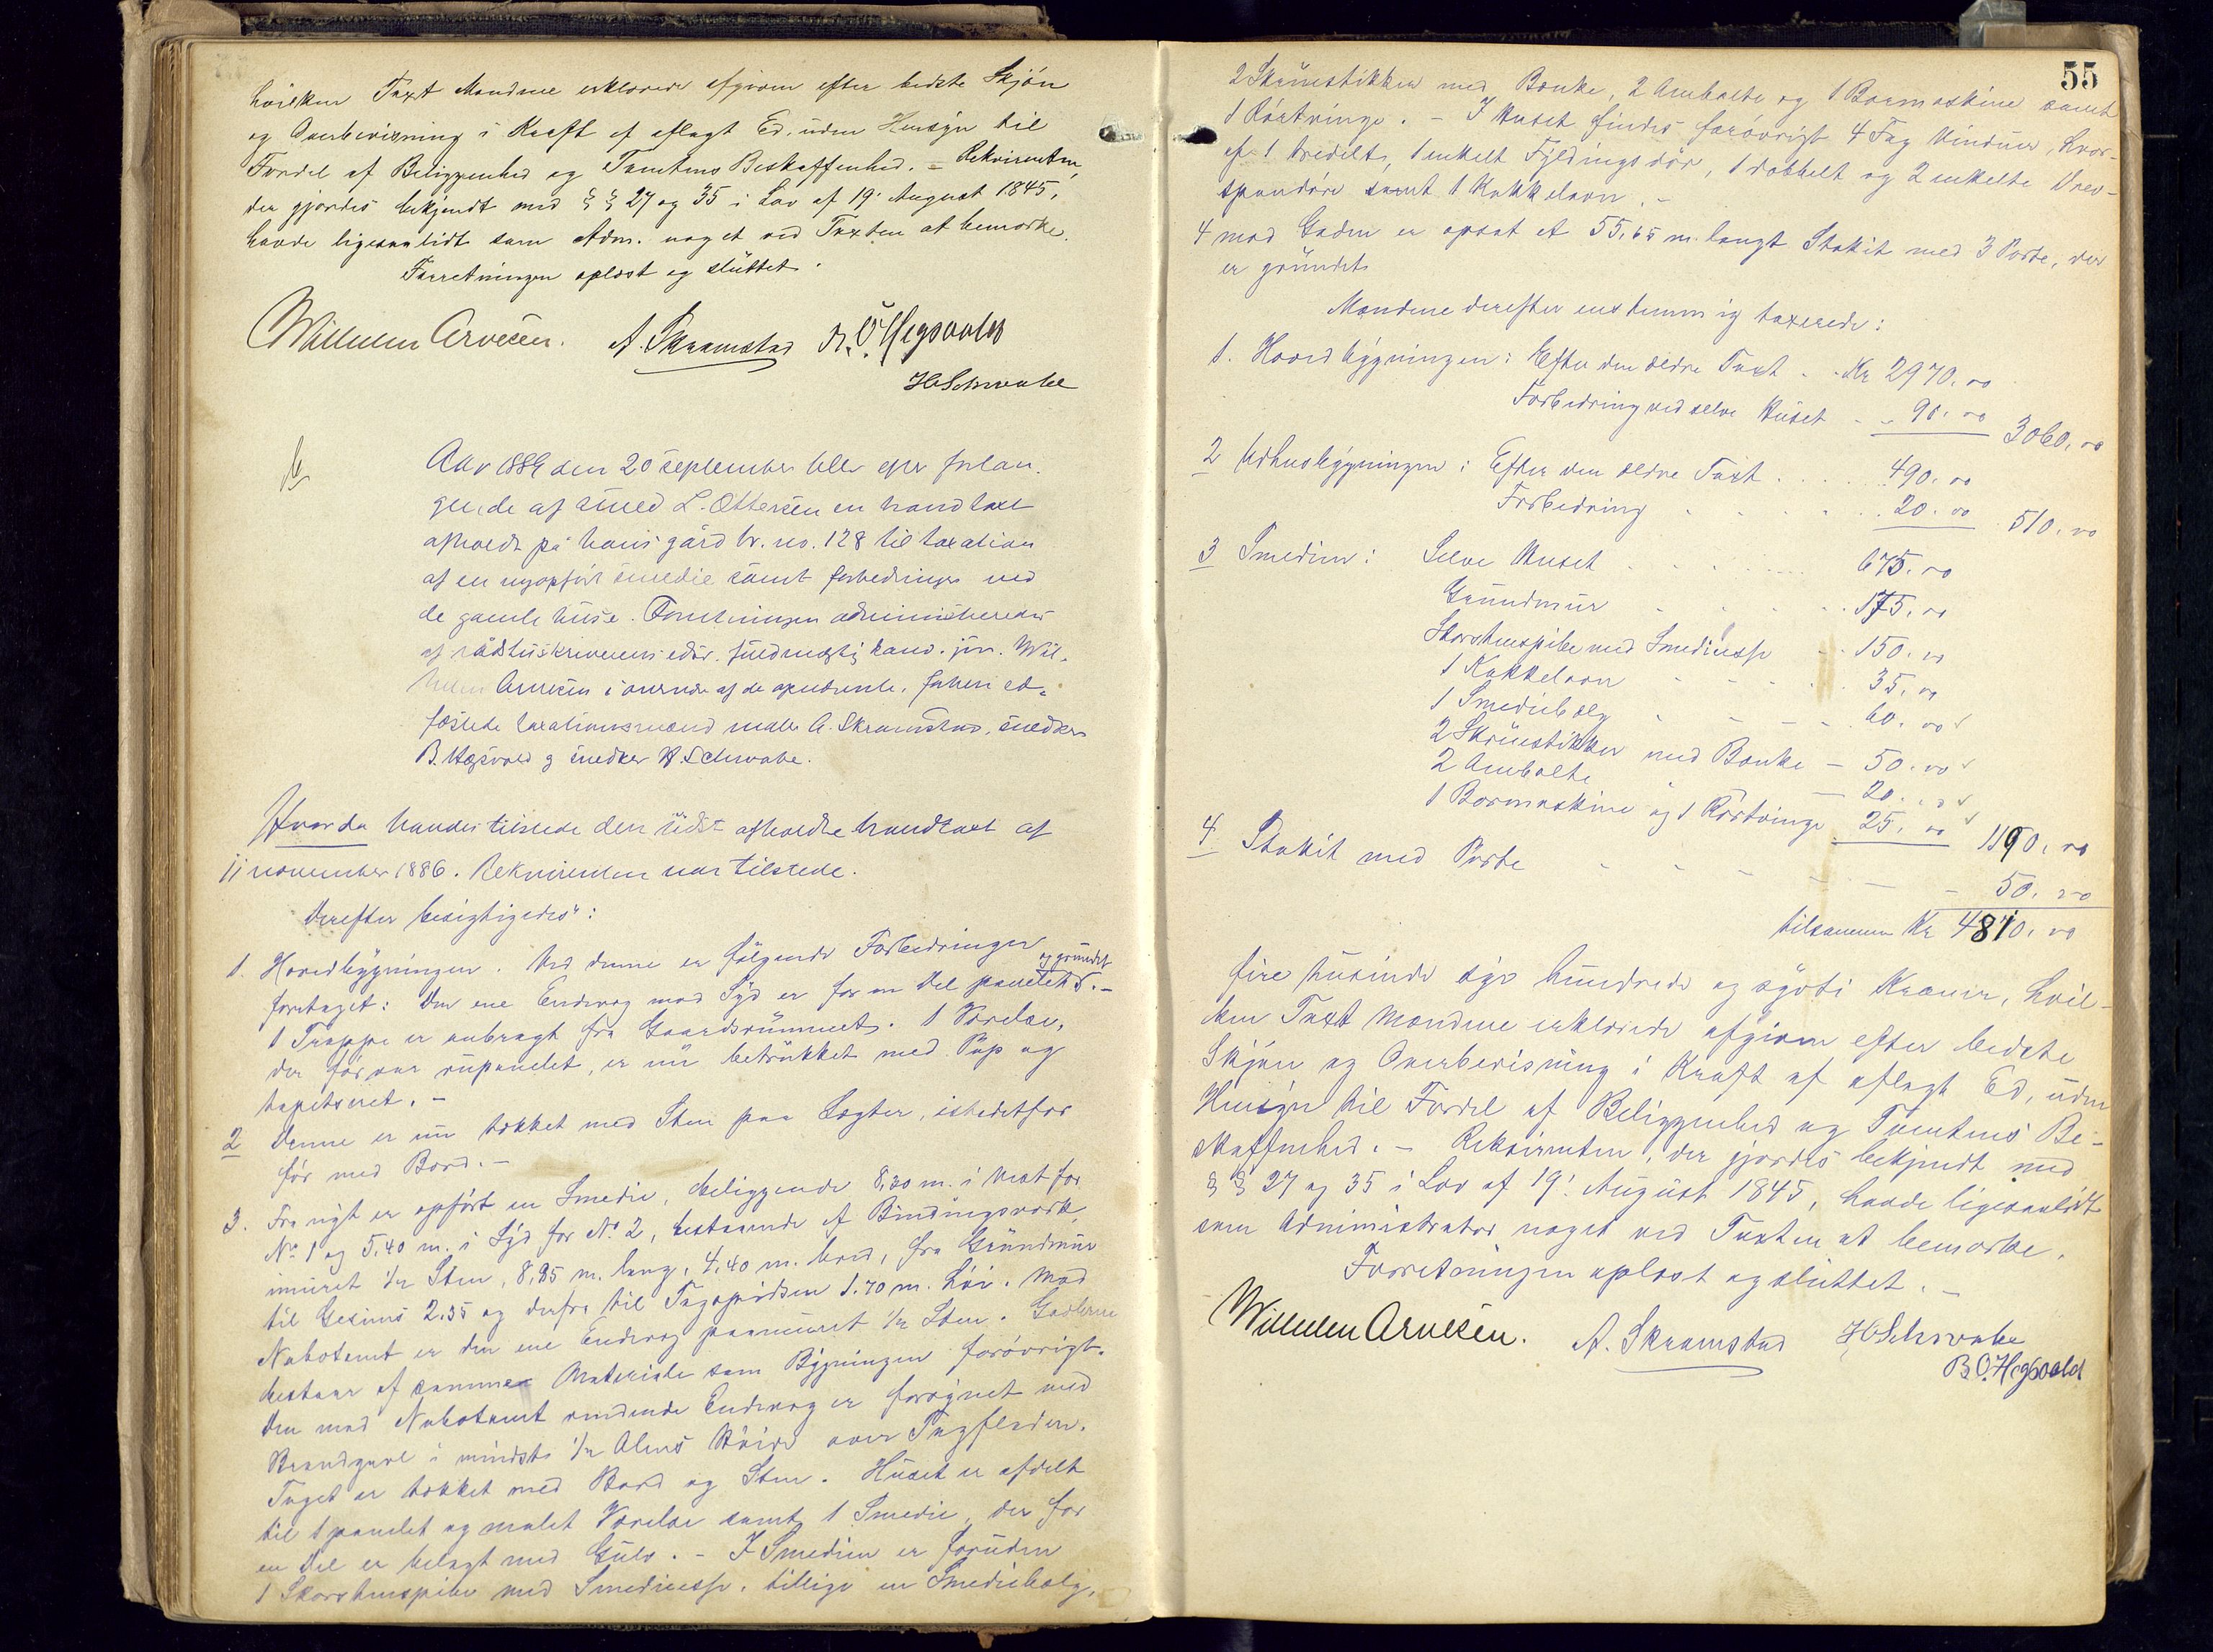 hvilken Taxt Mændene erklærede afgiven efter bedste Skjøn
og Overbevisning i Kraft af aflagt Ed, uden Hensyn til
Fordel af Beliggenhed og Tomtens Beskaffenhed. – Rekvirenten,
der gjordes bekjendt med §§ 27 og 35 i Lov af 19. August 1845,
havde ligesaalidt som Adm. noget ved Taxten at bemærke.
Forretningen oplæst og sluttet.
Wilhelm Arvesen. A. Skramstad B. O. Hegsvold
H Schwabe
Aar 1889 den 20 september blev efter forlan-
gende af smed L. Ottersen en brandtaxt
afholdt på hans gård br. no. 128 til taxation
af en nyopført smedie samt forbedringer ved
de gamle huse. Forretningen administreredes
af rådstuskriverens edsv. fuldmægtig kand. jur. Wil-
helm Arvesen i overvær af de opnævnte, forhen ed-
fæstede taxationsmænd maler A. Skramstad, snedker
B. Hegsvold og snedker H Schwabe.
Hvorda havdes tilstede den sidst afholdte brandtaxt af
11 november 1886. Rekvirenten var tilstede.
Derefter besigtigedes:
1. Hovedbygningen. Ved denne er følgende Forbedringer
foretaget: Den ene Endevæg mod Syd er for en Del panelet og grundet. –
1 Trappe er anbragt fra Gaardsrummet. 1 Værelse,
der før var upanelet, er nu betrukket med Pap og
tapetseret. –
2 Denne er nu tækket med Sten paa Lægter, istedetfor
før med Bord. –
3. Fra nyt er opført en Smedie, beliggende 8,20 m. i Vest for
No 1 og 5,40 m. i Syd for No 2, bestaaende af Bindingsværk,
muret 1/2 Sten, 8,85 m. lang, 4,40 m. bred, fra Grundmur
til Gesims 2.35 og derfra til Tagspidsen 1.70 m. høi. Mod
Nabotomt er den ene Endevæg paamuret 1/2 Sten. Gavlerne
bestaar af samme Materiale som Bygningen forøvrigt.
Den mod Nabotomt vendende Endevæg er forsynet med
Brandgavl i mindst 1/2 Alens Høide over Tagfladen.
Taget er tækket med Bord og Sten. Huset er afdelt
til 1 panelet og malet Værelse samt 1 Smedie, der for
en Del er belagt med Gulv. – I Smedien er foruden
1 Skorstenspibe med Smedieesse, tillige en Smediebælg,
55
2 Skruestikker med Bænke, 2 Ambolte og 1 Boremaskine samt
1 Rørtvinge. – I Huset findes forøvrigt 4 Fag Vinduer, hvor-
af 1 tredelt, 1 enkelt Fyldingsdør, 1 dobbelt og 2 enkelte
samt 1 Kakkelovn. –
4 mod Gaden er opsat et 55,65 m. langt Stakit med 3 Porte, der
er grundet
Mændene derefter enstemmig taxerede:
1. Hovedbygningen: Efter den ældre Taxt - - Kr 2970.00
Forbedring ved selve Huset - - 90.00 3060.00
2 Udhusbygningen: Efter den ældre Taxt . . . . 490.00
Forbedring . . . . 20.00 510.00
3 Smedien: Selve Huset . . . . 675.00
Grundmur . . . . 175.00
Skorstenspibe med Smedieesse - - 150.00
1 Kakkelovn - - - - 35.00
1 Smediebælg - - - - 60.00
2 Skruestikker med Bænke – 50.00
2 Ambolte – 20.00
1 Boremaskine og 1 Rørtvinge 25.00 1190.00
4 Stakit med Porte - - - - - - - 50.00
tilsammen Kr 4810.00
fire tusinde otte hundrede og Kroner, hvil-
ken Taxt Mændene erklærede afgiven efter bedste
Skjøn og Overbevisning i Kraft af aflagt Ed, uden
Hensyn til Fordel af Beliggenhed og Tomtens Be-
skaffenhed. – Rekvirenten, der gjordes bekjendt med
§§ 27 og 35 i Lov af 19. August 1845, havde ligesaalidt
som Administrator noget ved Taxten at bemærke.
Forretningen oplæst og sluttet. –
Wilhelm Arvesen. A. Skramstad H Schwabe
B. O. Hegsvold